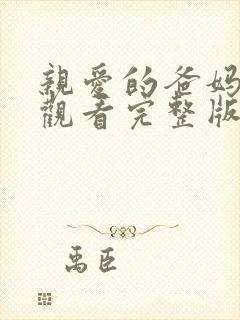 親愛的爸媽
觀看完整版
禹臣